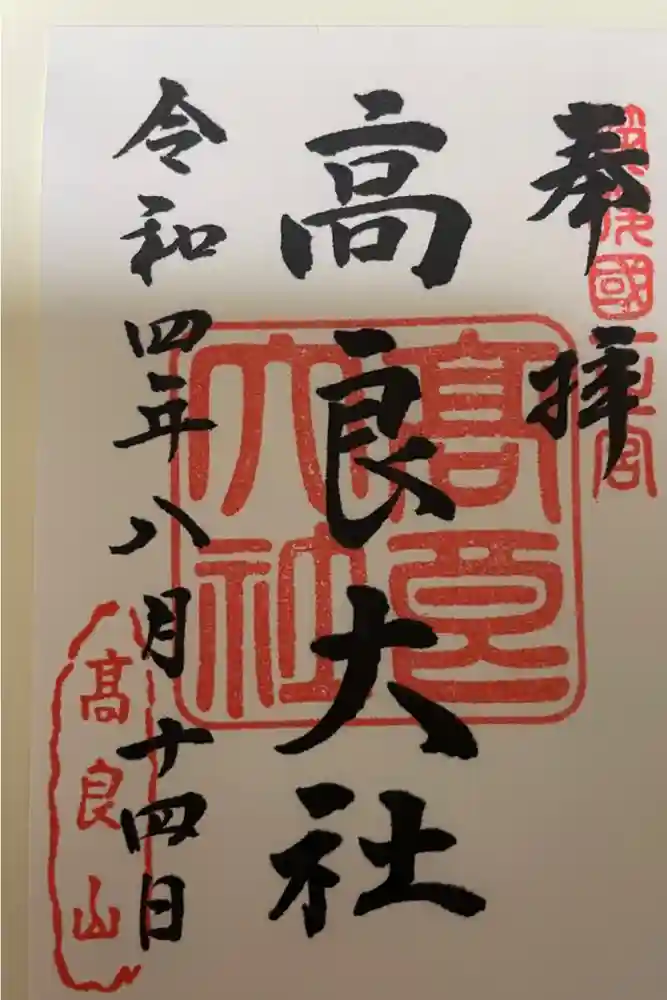 奉拝
筑後國一之宮
高良大社
高良大社
令和四年八月十四日
髙良山